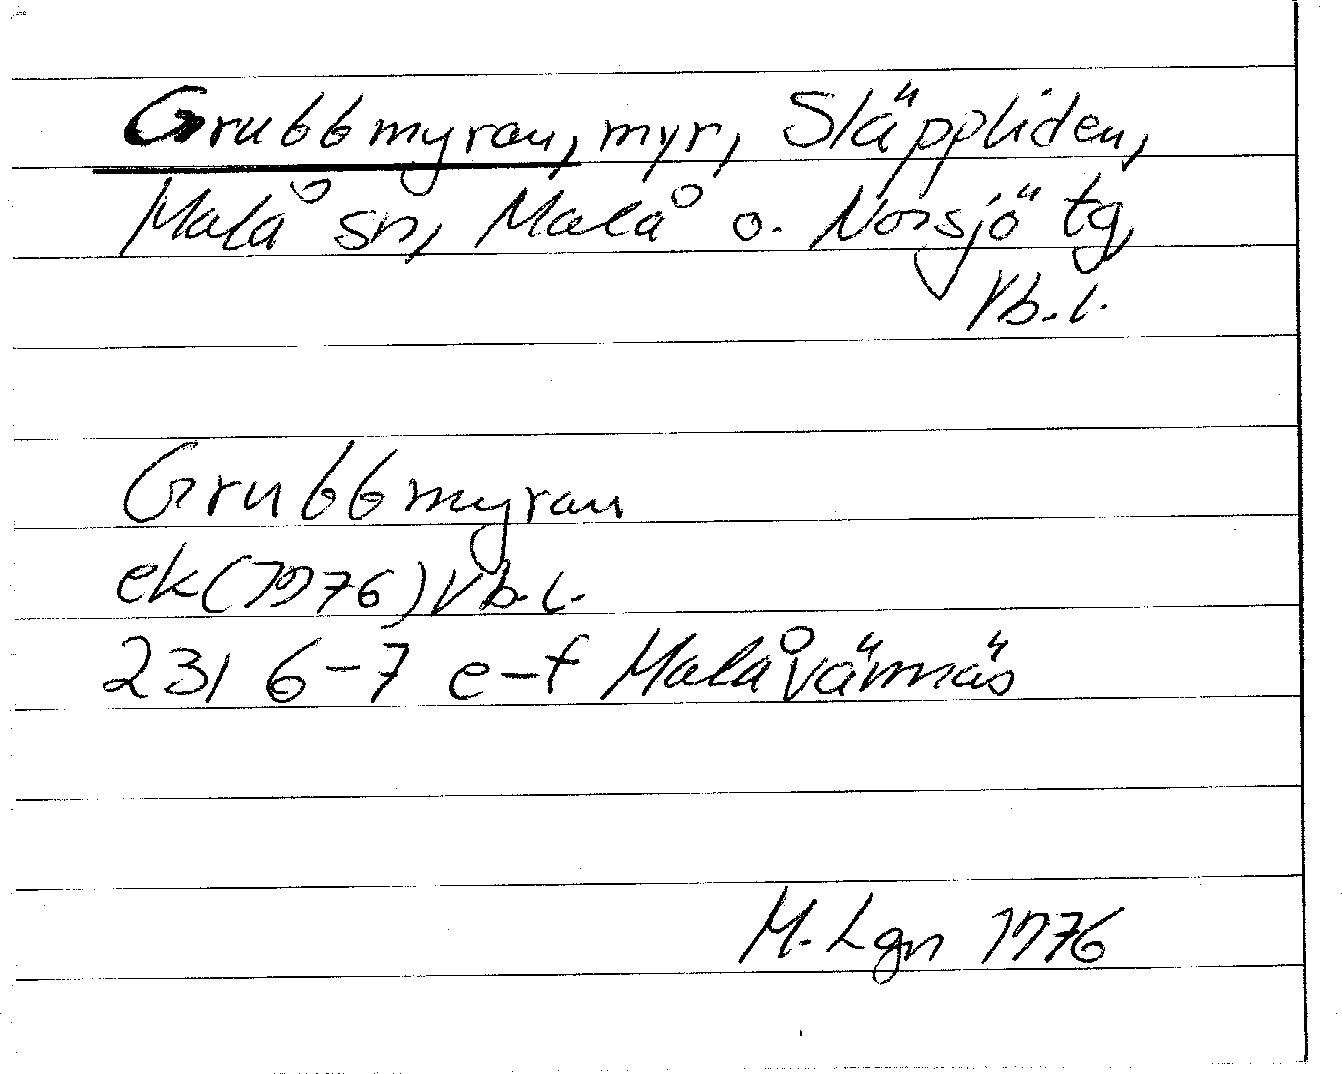 Grubbmyran, myr, Släppliden,
Malå sn, Malå o. Norsjö tg,
Vb.l.
Grubbmyran
ek(1976)Vb.l.
231 6-7 e-f Malåvännäs
M. Lgn 1976